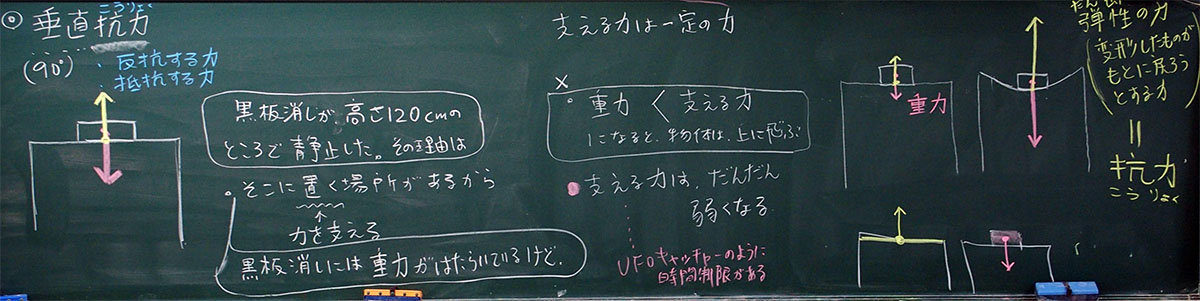 ◎垂直抗力
こうりょく
(90°)
・反抗する力
・抵抗する力
黒板消しが、高さ120cmの
ところで静止した。その理由は
。そこに置く場所があるから
↑
力を支える
黒板消しには重力がはたらいているけど、
支える力は一定の力
×
。重力 < 支える力
になると、物体は、上に飛ぶ
●支える力は、だんだん
弱くなる
UFOキャッチャーのように
時間制限がある
重力
弾性の力
(変形したものが
もとに戻ろう
とする力)
||
抗力
こうりょく